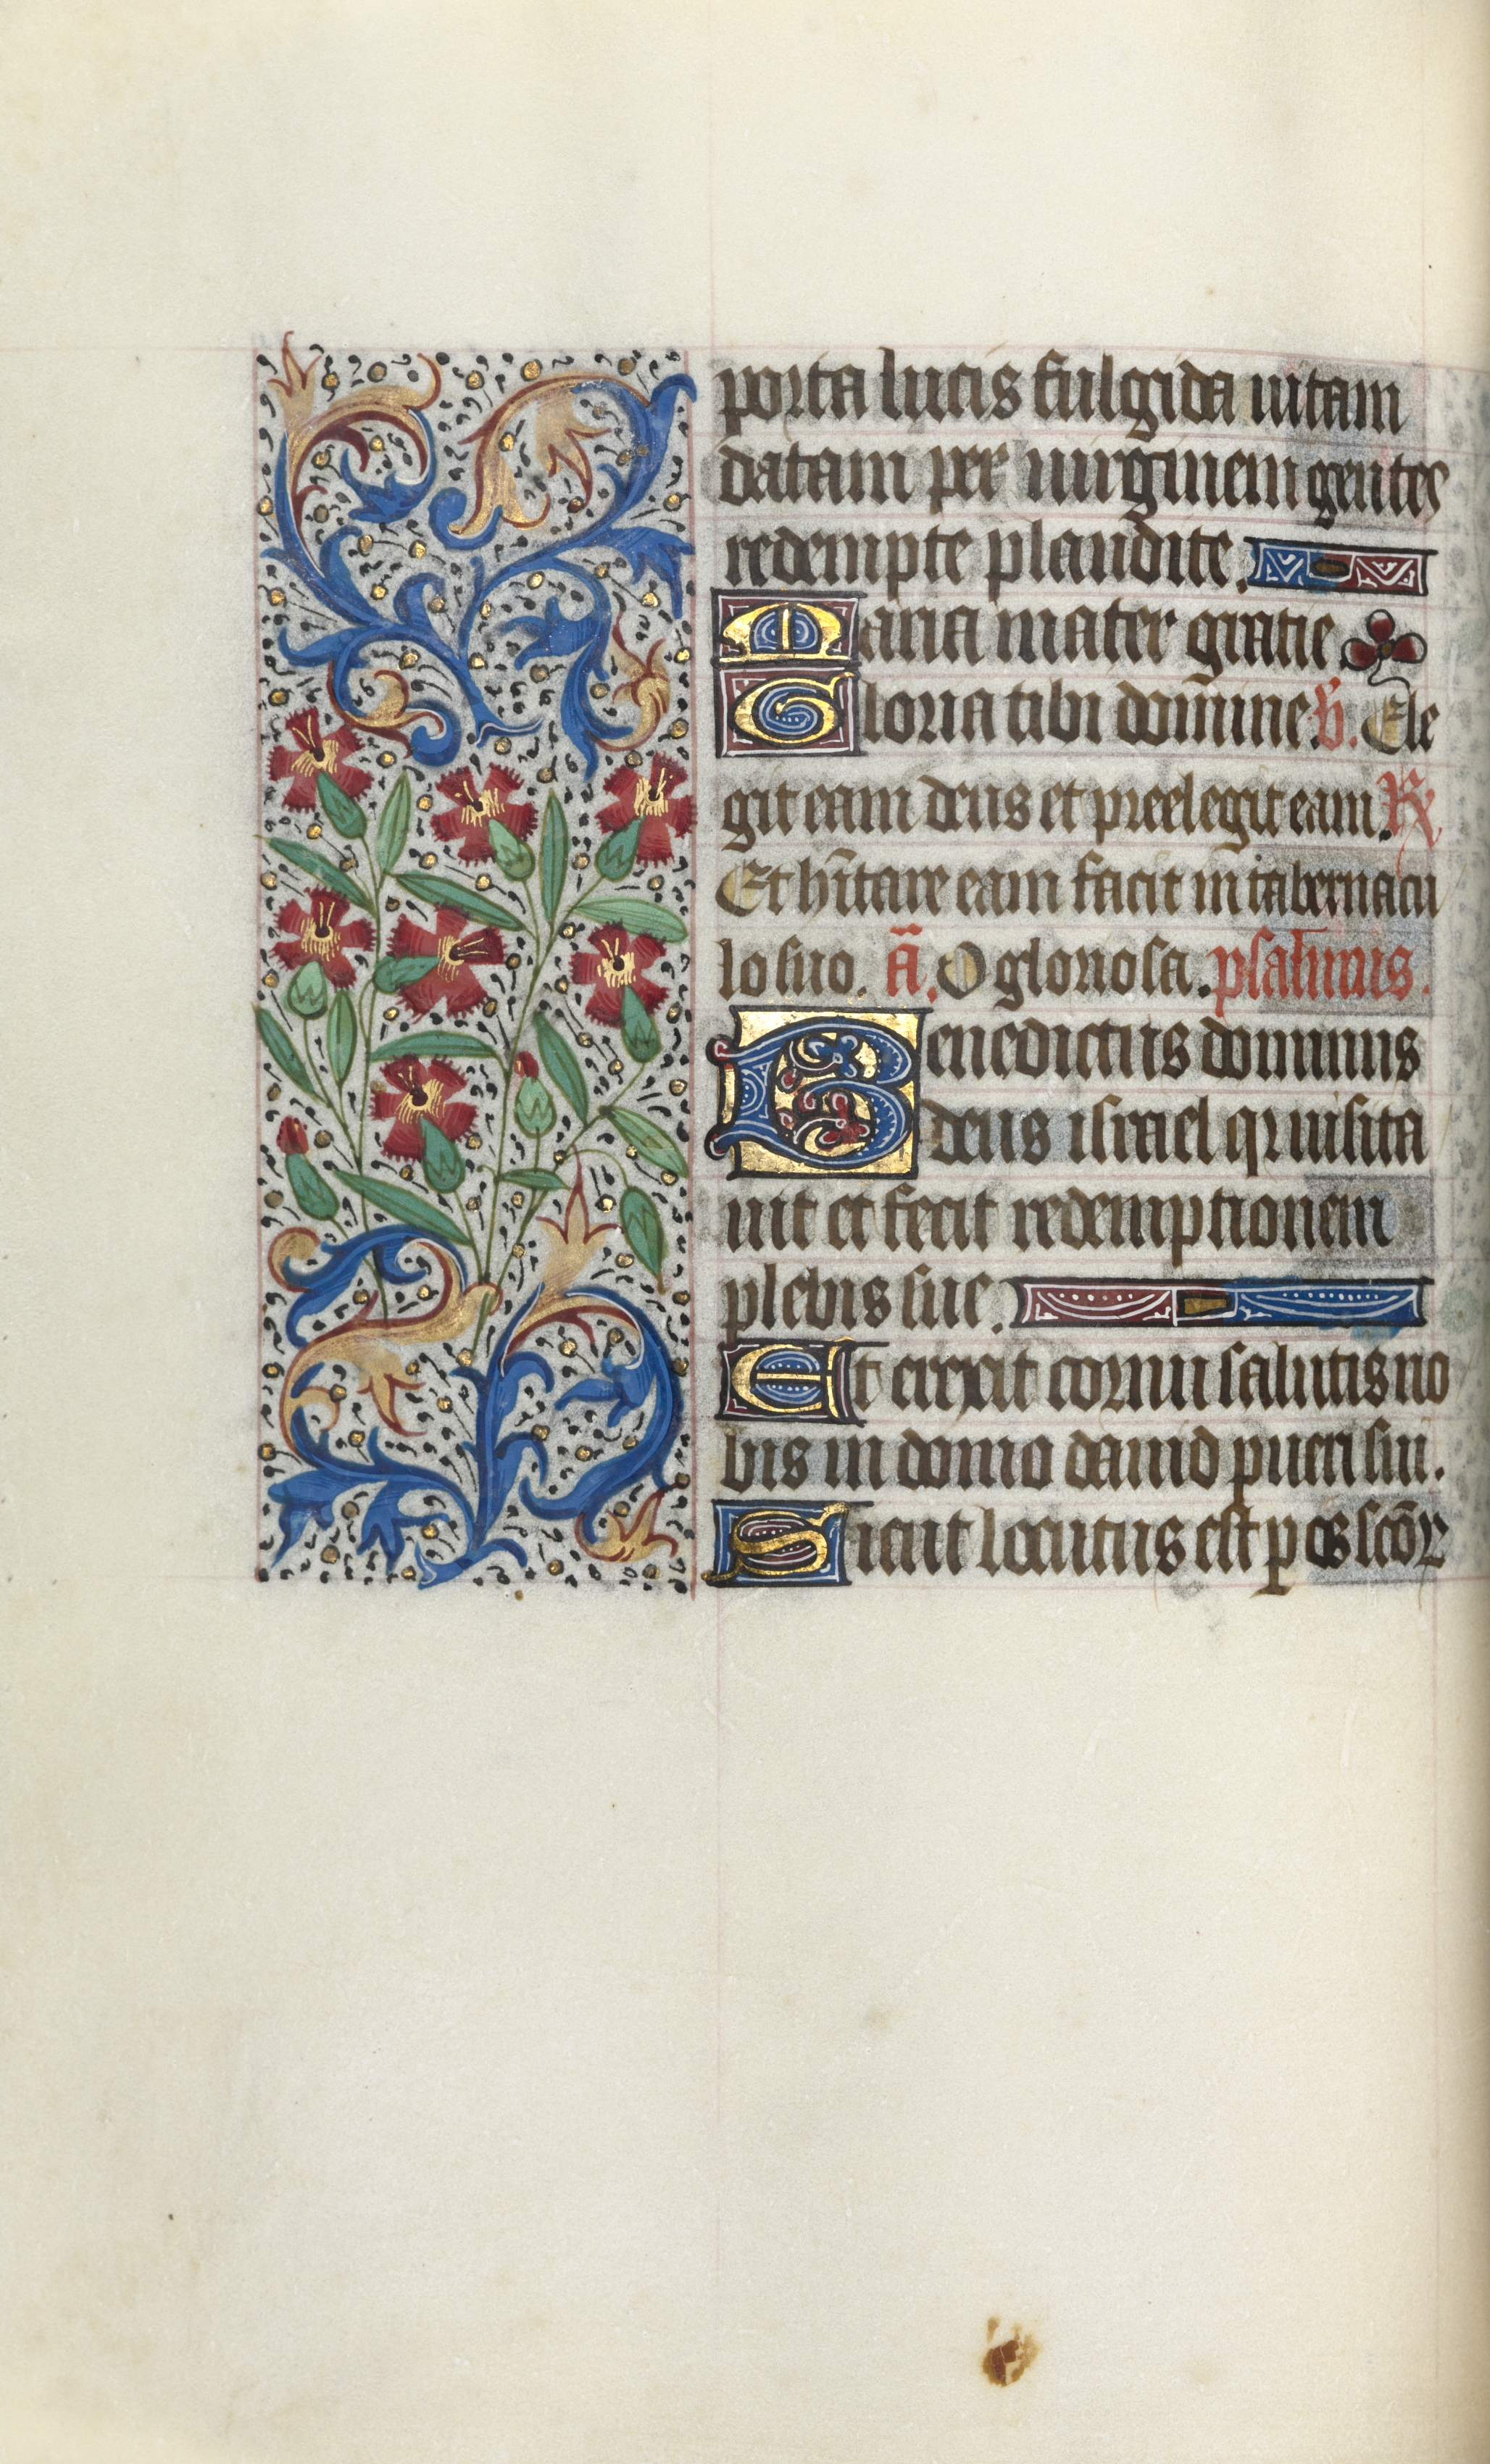 porta lucis fulgida uitam
datam per uirginem gentes
redempte plaudite.
Maria mater gratie
Gloria tibi dom̄ine. V̄. Ele
git eam deus et preelegit eam. R̷
Et h̄itare eam facit in tabernacu
lo suo. Ā. O gloriosa. psalmus.
Benedictus dominus
deus israel qui uisita
uit et fecit redemptionem
plebis sue.
Et erexit cornu salutis no
bis in domo dauid pueri sui.
Sicut locutus est p os scōꝝ